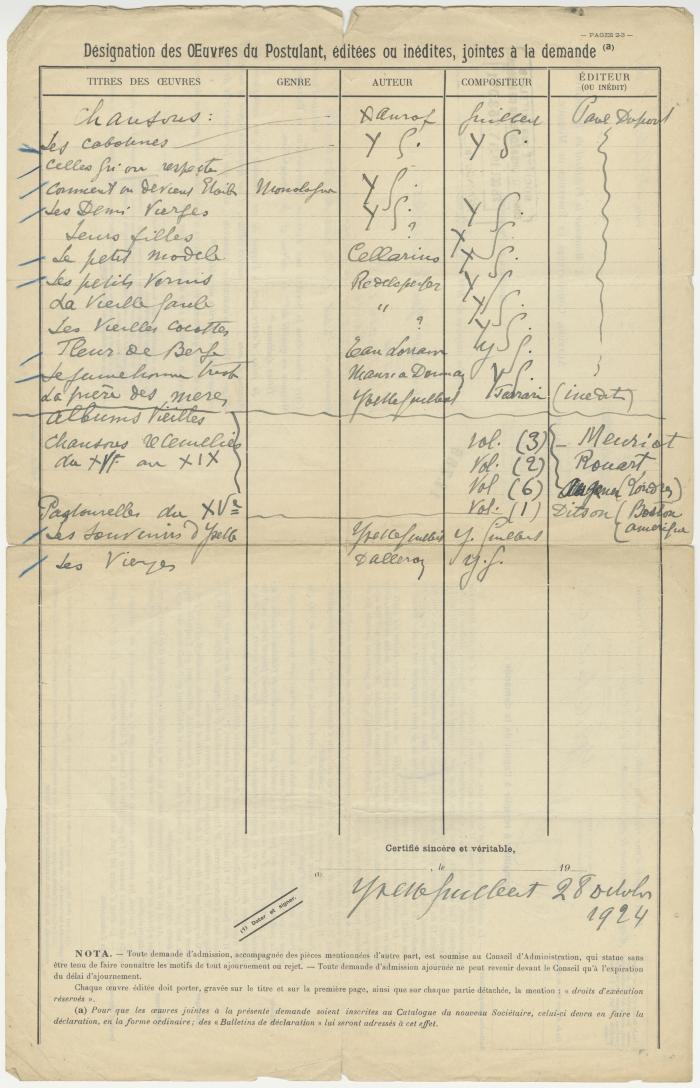 — PAGES 2-3 —
Désignation des Œuvres du Postulant, éditées ou inédites, jointes à la demande (a)
TITRES DES ŒUVRES GENRE AUTEUR COMPOSITEUR ÉDITEUR
(OU INÉDIT)
Chansons : Xanrof Guilbert Paul Dupont
Les cabotines Y G. Y G.
Celles qu'on respecte
Comment on devient Etoile Monologue Y G.
Les Demi Vierges Y G. Y G.
Leurs filles ?
Le petit modèle Cellarius Y G.
Les petits Vernis Redelsperger Y G.
La Vieille " Y G.
Les Vieilles cocottes ? Y G.
Fleur de Berge Jean Lorrain Y G.
Le jeune homme triste Maurice Donnay Y
La prière des meres Yvette Guilbert Ferrari (inédit)
Albums Vieilles
Chansons recueillies Vol. (3) — Meuriot
du XVe au XIX Vol. (2) Rouart
Vol (6) Augener (Londres)
Pastourelles du XVe Vol. (1) Ditson (Boston
amérique
Les Souvenirs d'Yvette Yvette Guilbert Y. Guilbert
Les Vierges Dalleroy Y. G.
Certifié sincère et véritable,
(1) , le 19
Yvette Guilbert 28 octobre
1924
(1) Dater et signer.
NOTA. — Toute demande d'admission, accompagnée des pièces mentionnées d'autre part, est soumise au Conseil d'Administration, qui statue sans
être tenu de faire connaître les motifs de tout ajournement ou rejet. — Toute demande d'admission ajournée ne peut revenir devant le Conseil qu'à l'expiration
du délai d'ajournement.
Chaque œuvre éditée doit porter, gravée sur le titre et sur la première page, ainsi que sur chaque partie détachée, la mention : « droits d'exécution
réservés ».
(a) Pour que les œuvres jointes à la présente demande soient inscrites au Catalogue du nouveau Sociétaire, celui-ci devra en faire la
déclaration, en la forme ordinaire ; des « Bulletins de déclaration » lui seront adressés à cet effet.